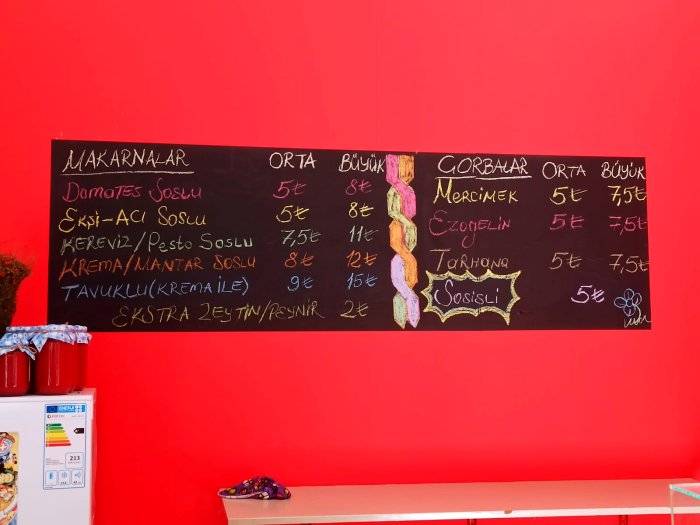 MAKARNALAR ORTA BÜYÜK
Domates Soslu 5₺ 8₺
Ekşi-Acı Soslu 5₺ 8₺
KEREViZ/Pesto Soslu 7,5₺ 11₺
KREMA/MANTAR SOSLU 8₺ 12₺
TAVUKLU(KREMA iLE) 9₺ 15₺
EKSTRA ZEYTİN/PEYNİR 2₺
ÇORBALAR ORTA BÜYÜK
MERCİMEK 5₺ 7,5₺
Ezogelin 5₺ 7,5₺
TARHANA 5₺ 7,5₺
Sosisli 5₺
213